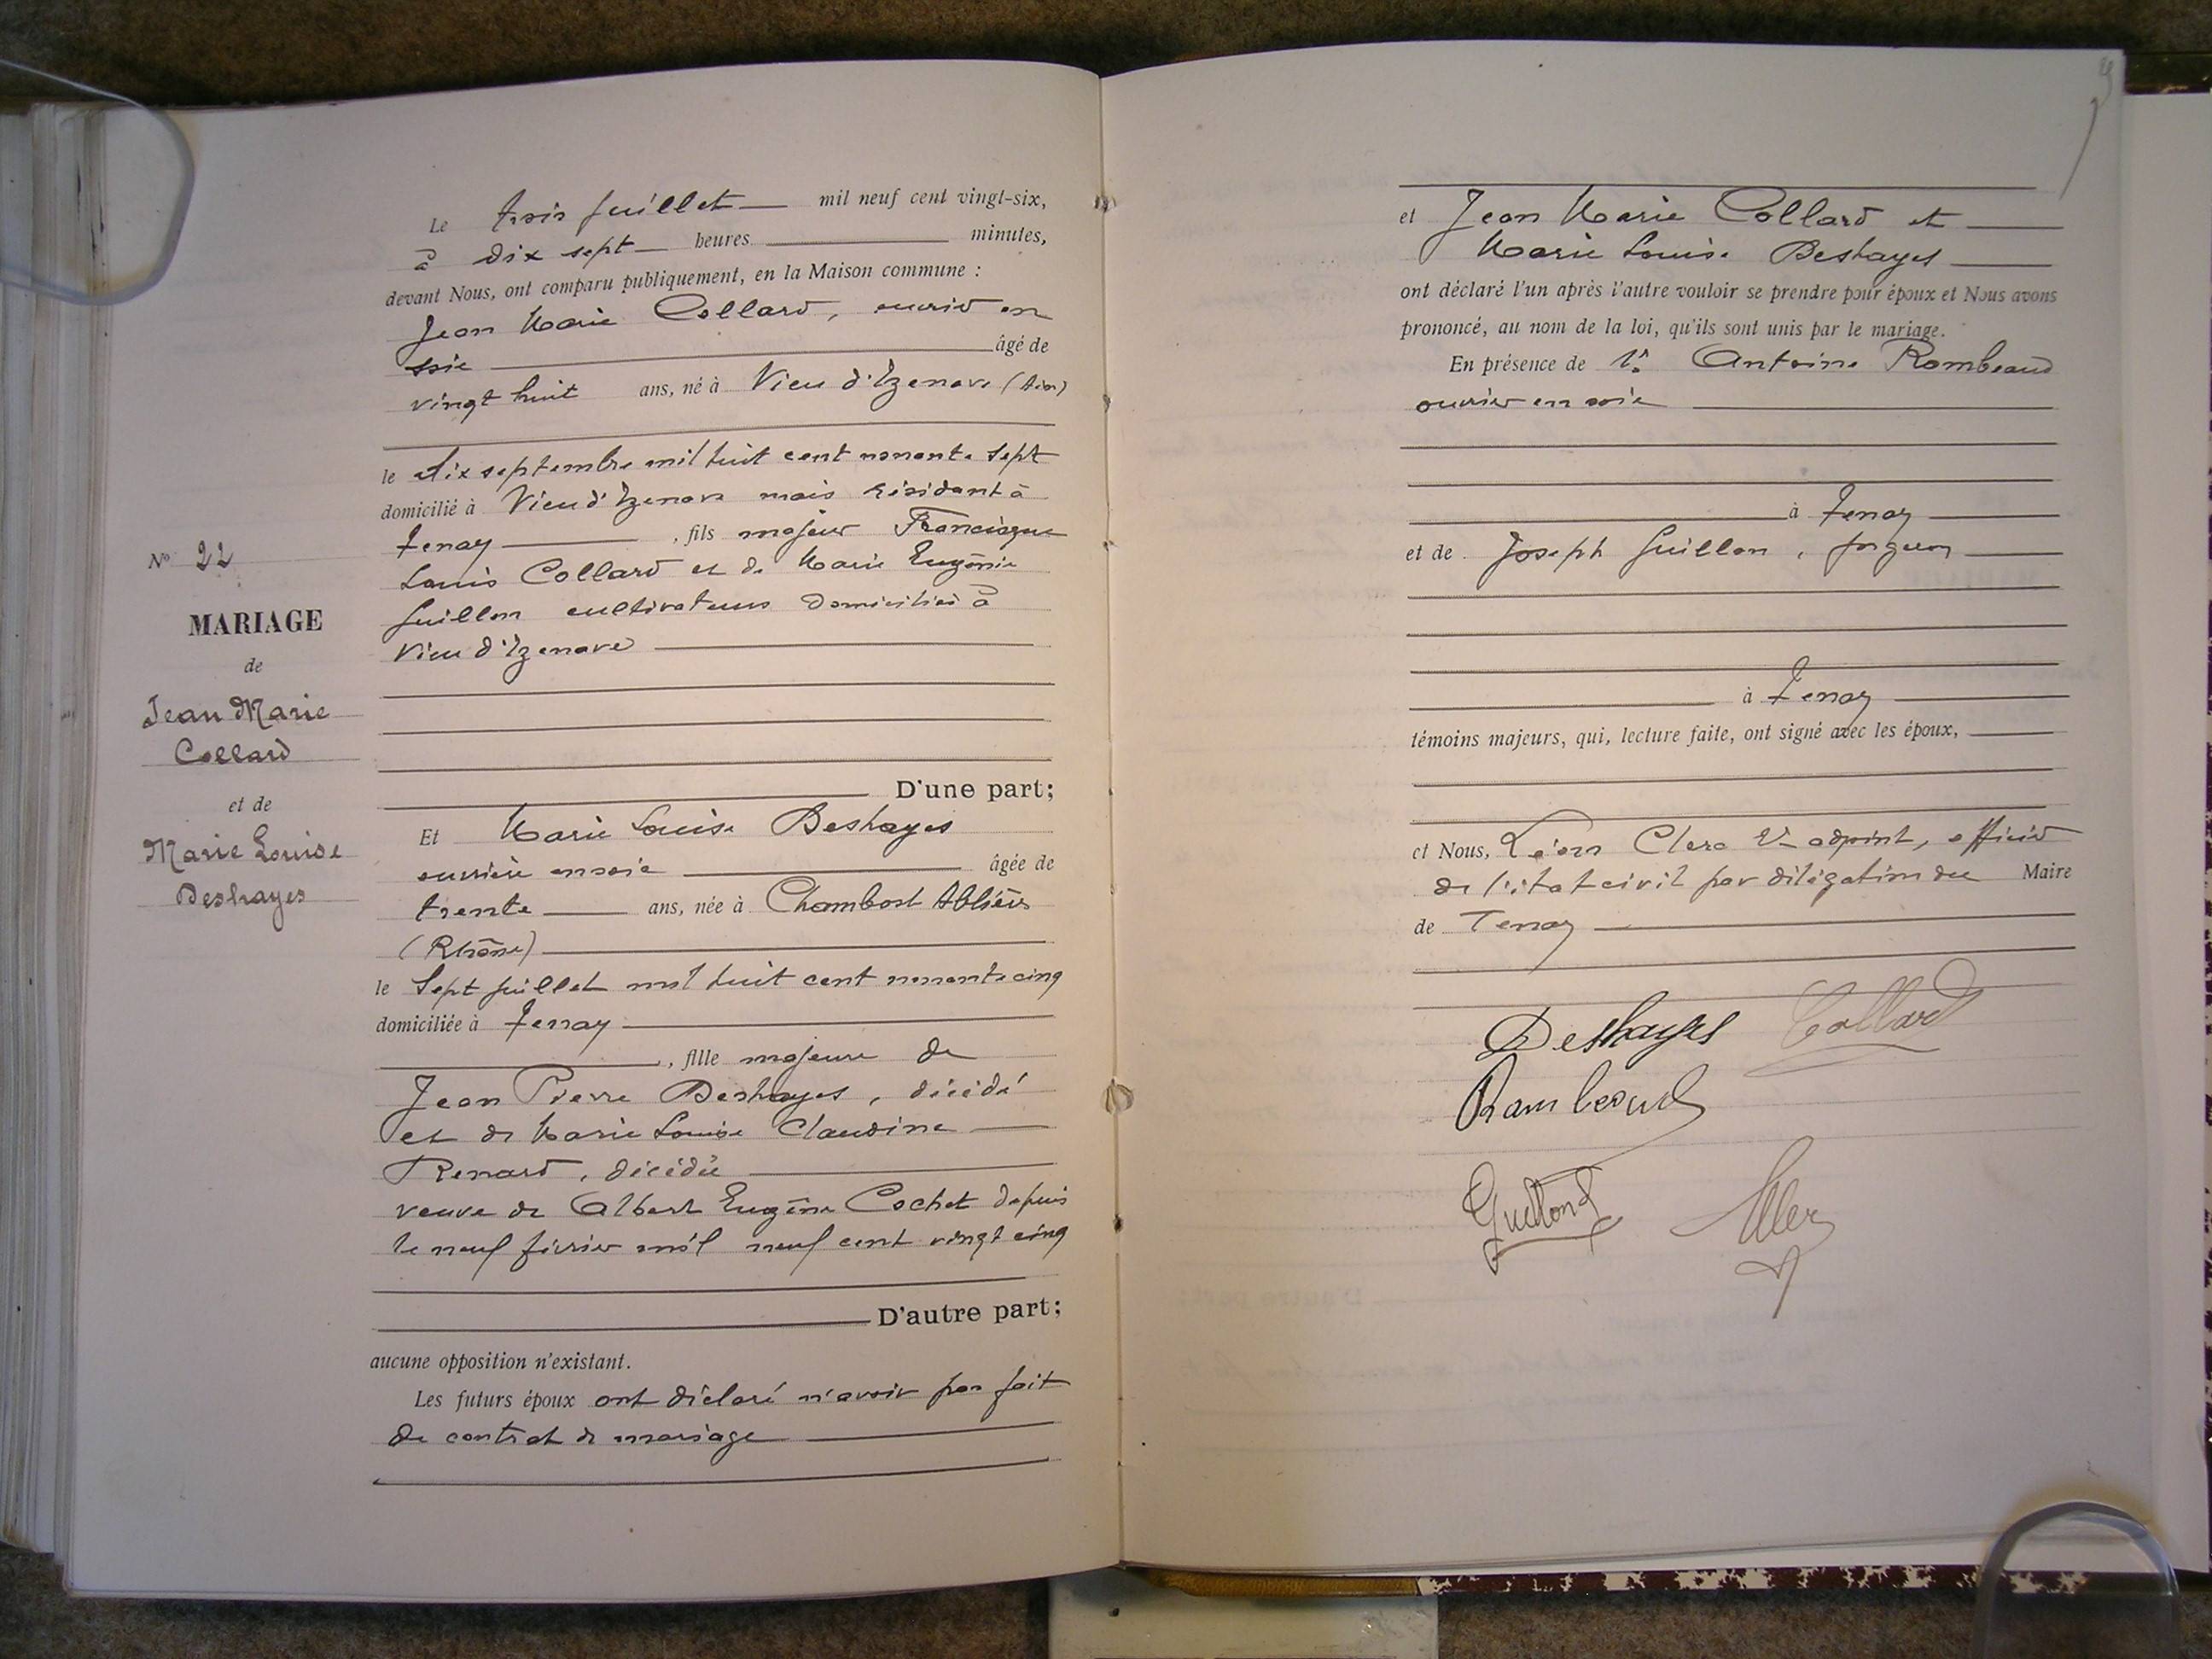 Nº 22
MARIAGE
de
Jean Marie
Collard
et de
Marie Louise
Deshayes
Le trois juillet mil neuf cent vingt-six,
à dix sept heures minutes,
devant Nous, ont comparu publiquement, en la Maison commune :
Jean Marie Collard, ouvrier en
soie âgé de
vingt huit ans, né à Vieu d'Izenave (Ain)
le dix septembre mil huit cent nonante sept
domicilié à Vieu d'Izenave mais résidant à
Tenay, fils majeur Francisque
Louis Collard et de Marie Eugénie
Guillon cultivateurs domiciliés à
Vieu d'Izenave
D'une part;
Et Marie Louise Deshayes
ouvrière en soie âgée de
trente ans, née à Chambost Allières
(Rhône)
le sept juillet mil huit cent nonante cinq
domiciliée à Tenay
, fille majeure de
Jean Pierre Deshayes, décédé
et de Marie Louise Claudine
Renard, décédée
veuve de Albert Eugène Cochet depuis
le neuf février mil neuf cent vingt cinq
D'autre part;
aucune opposition n'existant.
Les futurs époux ont déclaré n'avoir pas fait
de contrat de mariage
et Jean Marie Collard et
Marie Louise Deshayes
ont déclaré l'un après l'autre vouloir se prendre pour époux et Nous avons
prononcé, au nom de la loi, qu'ils sont unis par le mariage.
En présence de Antoine Rambeaud
ouvrier en soie
à Tenay
et de Joseph Guillon, forgeron
à Tenay
témoins majeurs, qui, lecture faite, ont signé avec les époux,
et Nous, Léon Clerc adjoint, officier
de l'état civil par délégation du Maire
de Tenay
Deshayes Collard
Rambeaud
Guillond